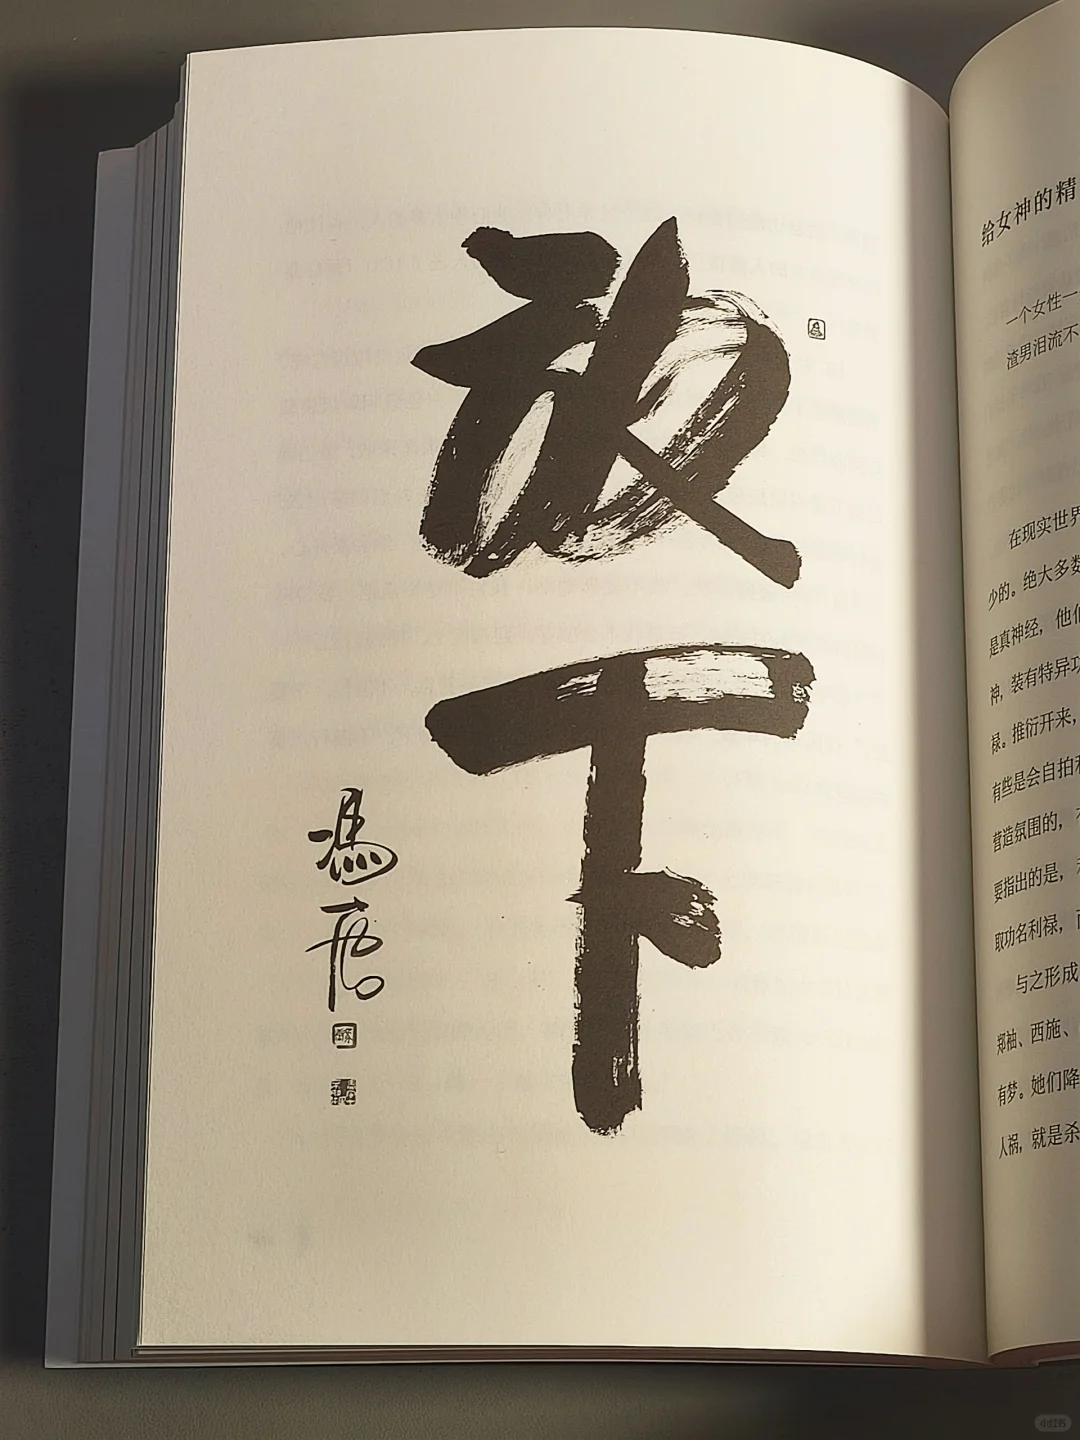 放下
馮唐
给女神的精
一个女性一
渣男泪流不
在现实世界
少的。绝大多数
是真神经，他们
神，装有特异功
禄。推衍开来，
有些是会自拍和
营造氛围的，
要指出的是，
取功名利禄，
与之形成
郑袖、西施、
有梦。她们降
人祸，就是杀
小红书